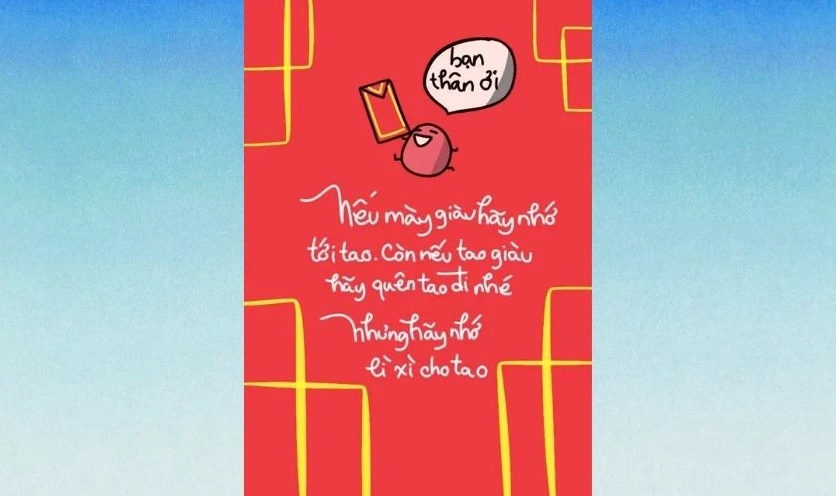 bạn
thân ơi
Nếu mày giàu hãy nhớ
tới tao. Còn nếu tao giàu
hãy quên tao đi nhé
Nhưng hãy nhớ
lì xì cho tao